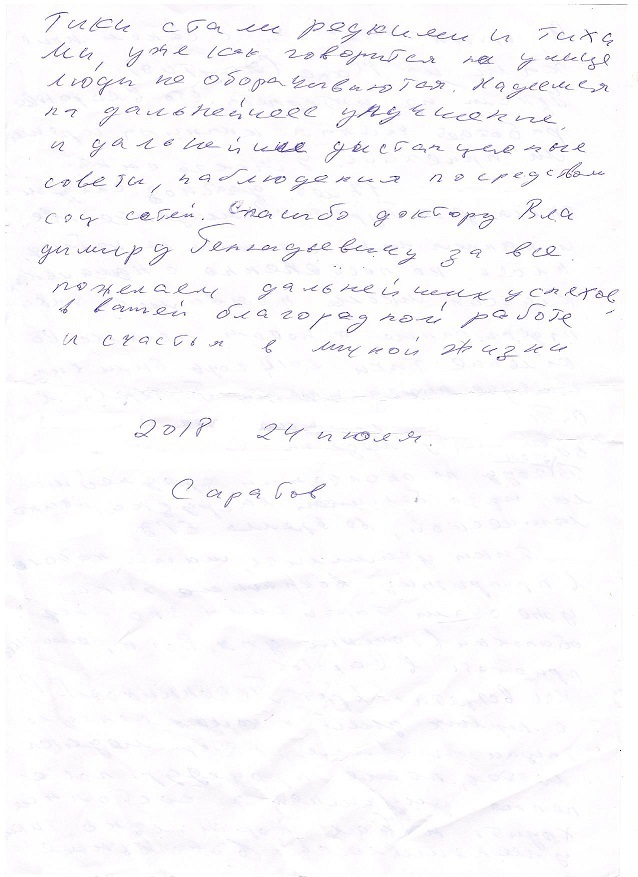 Тики стали редкими и тиха
ми, уже как говорится на улице
люди не оборачиваются. Надеемся
на дальнейшее улучшение
и дальнейшие дистанционные
совети, наблюдения посредством
соц сетей. Спасибо доктору Вла
димиру Геннадьевичу за все.
пожелаем дальнейших успехов,
в вашей благородной работе
и счастья в личной жизни
2018 24 июля.
Саратов